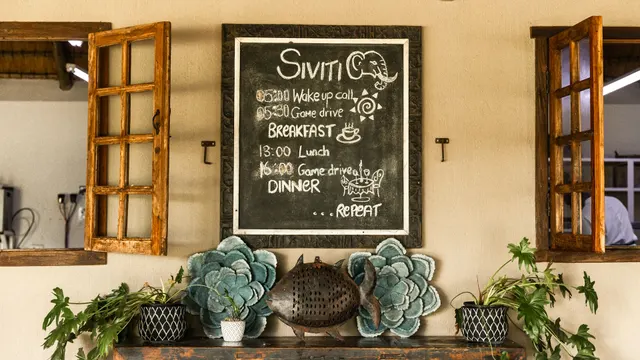 SIVITI
05:00 Wake up call
05:30 Game drive
BREAKFAST
13:00 Lunch
16:00 Game drive
DINNER
...REPEAT